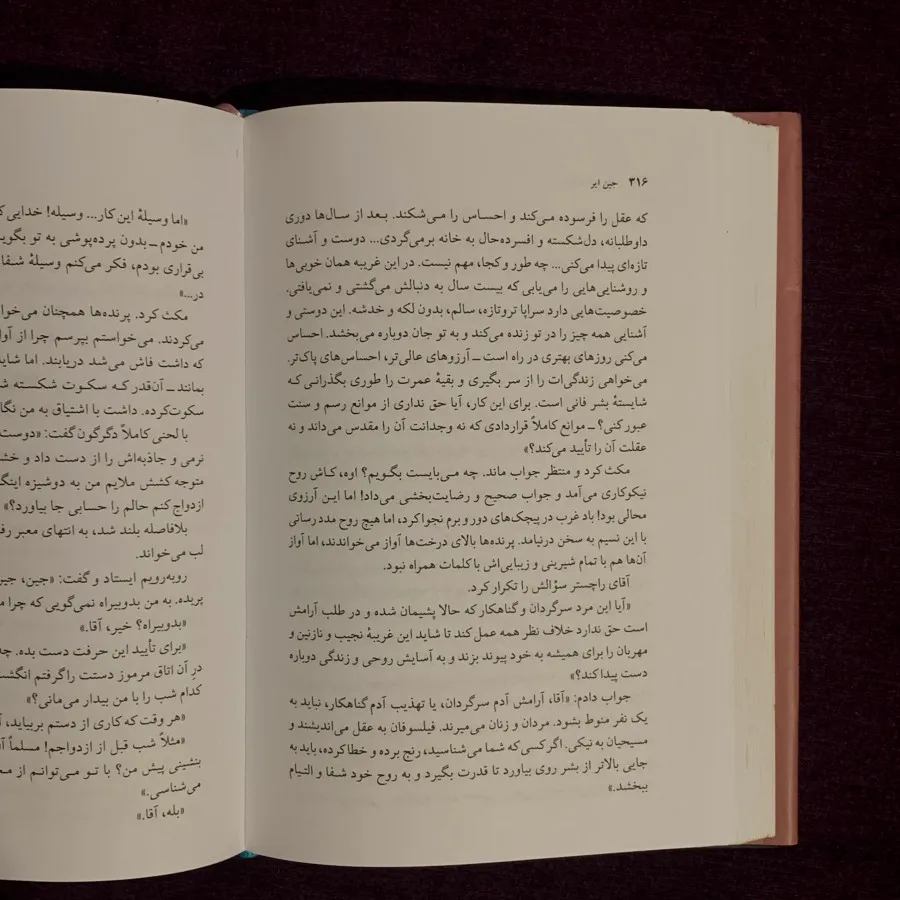 ۳۱۶ جین ایر
که عقل را فرسوده می‌کند و احساس را می‌شکند. بعد از سال‌ها دوری
داوطلبانه، دل‌شکسته و افسرده‌حال به خانه برمی‌گردی... دوست و آشنای
تازه‌ای پیدا می‌کنی... چه طور و کجا، مهم نیست. در این غریبه همان خوبی‌ها
و روشنایی‌هایی را می‌یابی که بیست سال به دنبالش می‌گشتی و نمی‌یافتی.
خصوصیت‌هایی دارد سراپا تروتازه، سالم، بدون لکه و خدشه. این دوستی و
آشنایی همه چیز را در تو زنده می‌کند و به تو جان دوباره می‌بخشد. احساس
می‌کنی روزهای بهتری در راه است ــ آرزوهای عالی‌تر، احساس‌های پاک‌تر.
می‌خواهی زندگی‌ات را از سر بگیری و بقیهٔ عمرت را طوری بگذرانی که
شایستهٔ بشر فانی است. برای این کار، آیا حق نداری از موانع رسم و سنت
عبور کنی؟ ــ موانع کاملاً قراردادی که نه وجدانت آن را مقدس می‌داند و نه
عقلت آن را تأیید می‌کند؟»
مکث کرد و منتظر جواب ماند. چه می‌بایست بگویم؟ اوه، کاش روح
نیکوکاری می‌آمد و جواب صحیح و رضایت‌بخشی می‌داد! اما این آرزوی
محالی بود! باد غرب در پیچک‌های دور و برم نجوا کرد، اما هیچ روح مددرسانی
با این نسیم به سخن درنیامد. پرنده‌ها بالای درخت‌ها آواز می‌خواندند، اما آواز
آن‌ها هم با تمام شیرینی و زیبایی‌اش با کلمات همراه نبود.
آقای راچستر سؤالش را تکرار کرد.
«آیا این مرد سرگردان و گناهکار که حالا پشیمان شده و در طلب آرامش
است حق ندارد خلاف نظر همه عمل کند تا شاید این غریبهٔ نجیب و نازنین و
مهربان را برای همیشه به خود پیوند بزند و به آسایش روحی و زندگی دوباره
دست پیدا کند؟»
جواب دادم: «آقا، آرامش آدم سرگردان، یا تهذیب آدم گناهکار، نباید به
یک نفر منوط بشود. مردان و زنان می‌میرند. فیلسوفان به عقل می‌اندیشند و
مسیحیان به نیکی. اگر کسی که شما می‌شناسید، رنج برده و خطا کرده، باید به
جایی بالاتر از بشر روی بیاورد تا قدرت بگیرد و به روح خود شفا و التیام
ببخشد.»
«اما وسیلهٔ این کار... وسیله! خدایی
من خودم ــ بدون پرده‌پوشی به تو
بی‌قراری بودم، فکر می‌کنم وسیلهٔ
در...»
مکث کرد. پرنده‌ها همچنان
می‌کردند. می‌خواستم بپرسم چرا از
که داشت فاش می‌شد دریابند. اما
بمانند ــ آن‌قدر که سکوت شکسته
سکوت‌کرده. داشت با اشتیاق به من
با لحنی کاملاً دگرگون گفت: «دوست
نرمی و جاذبه‌اش را از دست داد و
متوجه کشش ملایم من به دوشیزه
ازدواج کنم حالم را حسابی جا بیاورد؟»
بلافاصله بلند شد، به انتهای معبر
لب می‌خواند.
روبه‌رویم ایستاد و گفت: «جین،
پریده. به من بدوبیراه نمی‌گویی که چرا
«بدوبیراه؟ خیر، آقا.»
«برای تأیید این حرفت دست بده.
در آن اتاق مرموز دستت را گرفتم
کدام شب را با من بیدار می‌مانی؟»
«هر وقت که کاری از دستم بربیاید،
«مثلاً شب قبل از ازدواجم! مسلماً
بنشینی پیش من؟ با تو می‌توانم از
می‌شناسی.»
«بله، آقا.»